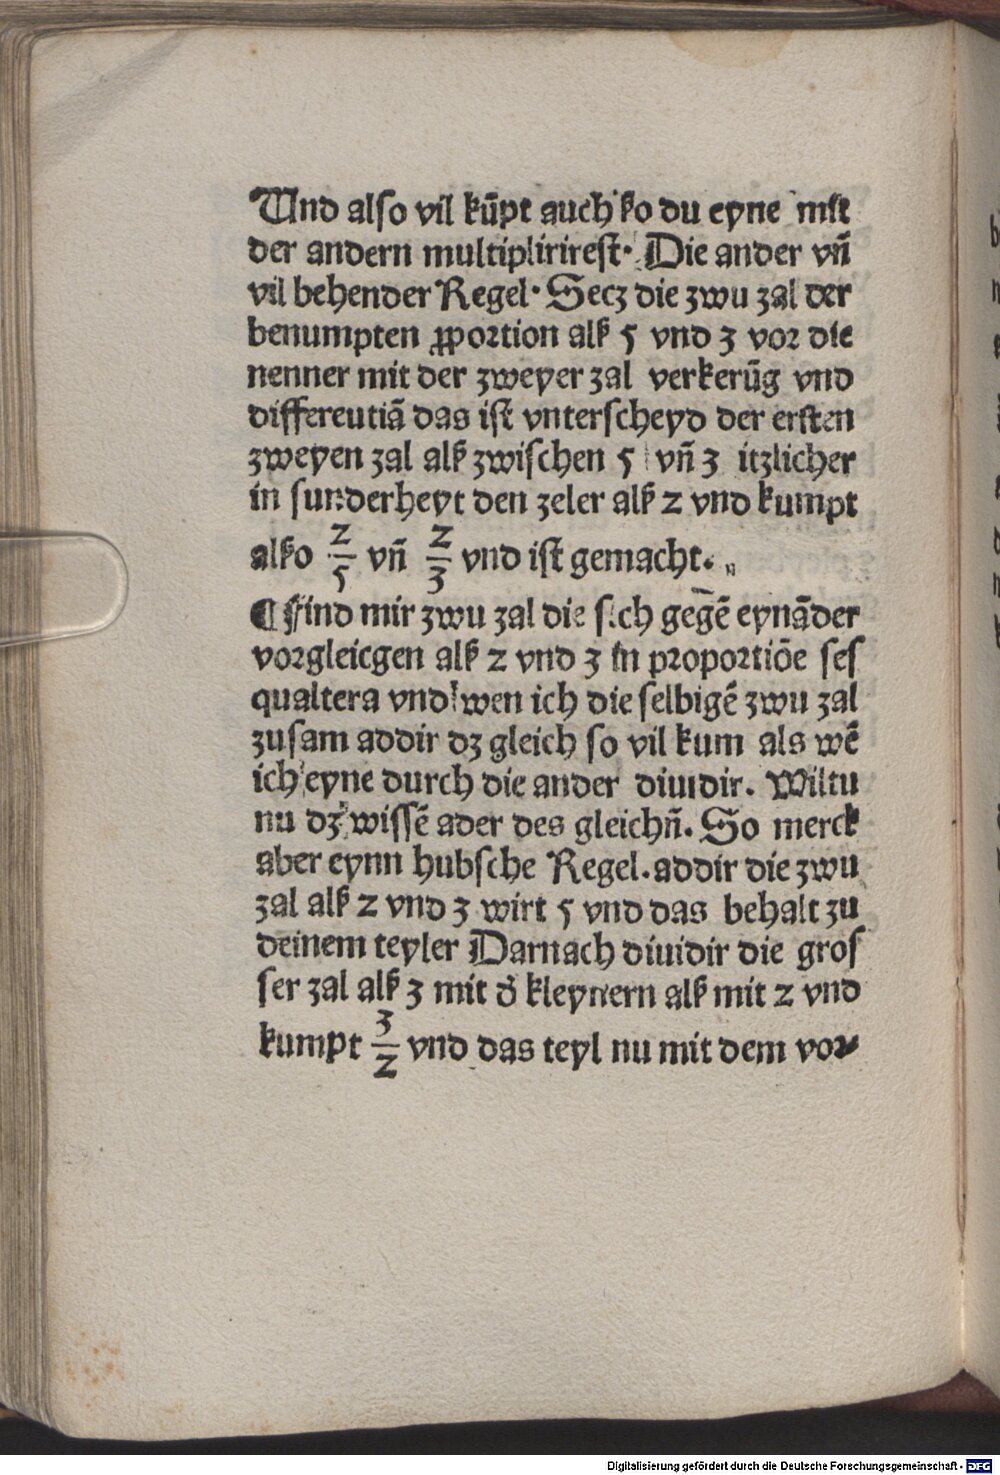 Und also vil kūpt auch ſo du eyne mit
der andern multiplirireſt· Die ander vn̄
vil behender Regel· Secz die zwu zal der
benumpten ꝓportion alß 5 vnd 3 vor die
nenner mit der zweyer zal verkerūg vnd
differeutiā das iſt vnterſcheyd der erſten
zweyen zal alß zwiſchen 5 vn̄ 3 itzlicher
in ſunderheyt den zeler alß 2 vnd kumpt
alſo 2/5 vn̄ 2/3 vnd iſt gemacht.
¶ Find mir zwu zal die ſich gegē eynāder
vorgleicgen alß 2 vnd 3 in proportiōe ſeſ
qualtera vnd wen ich die ſelbigē zwu zal
zuſam addir dz gleich ſo vil kum als wē
ich eyne durch die ander diuidir. Wiltu
nu dz wiſſē ader des gleichn̄. So merck
aber eynn hubſche Regel. addir die zwu
zal alß 2 vnd 3 wirt 5 vnd das behalt zu
deinem teyler Darnach diuidir die groſ
ſer zal alß 3 mit d̄ kleynern alß mit 2 vnd
kumpt 3/2 vnd das teyl nu mit dem vor⸗
Digitalisierung gefördert durch die Deutsche Forschungsgemeinschaft - DFG